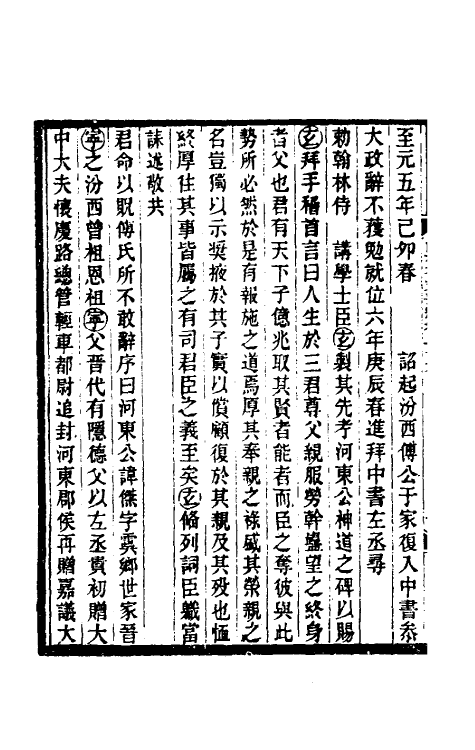 至元五年己卯春　詔起汾西傅公于家復入中書叅
大政辭不獲勉就位六年庚辰春進拜中書左丞尋
勅翰林侍　講學士臣玄製其先考河東公神道之碑以賜
玄拜手稽首言曰人生於三君尊父親服勞幹蠱望之終身
者父也君有天下子億兆取其賢者能者而臣之奪彼與此
勢所必然於是有報施之道焉厚其奉親之祿盛其榮親之
名豈獨以示奬掖於其子實以償顧復於其親及其歿也恤
終厚往其事皆屬之有司君臣之義至矣玄偹列詞臣職當
誄述敬共
君命以貺傅氏所不敢辭序曰河東公諱傑字虞卿世家晉
寧之汾西曾祖恩祖寧父晉代有隱德父以左丞貴初贈大
中大夫懷慶路總管輕車都尉追封河東郡侯再贈嘉議大